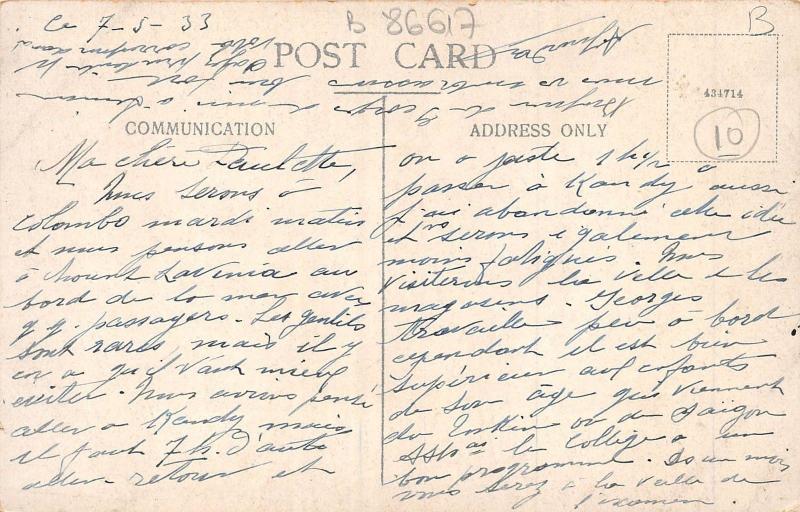 Le 7-5-33
B 86617
B
POST CARD
434714
10
COMMUNICATION
ADDRESS ONLY
Ma chère Paulette,
Nous serons à
Colombo mardi matin
et nous pensons aller
à Mount Lavinia au
bord de la mer avec
q.q. passagers. Les gentils
sont rares mais il y
en a qu'il vaut mieux
éviter. Nous avions pensé
aller à Kandy mais
il faut 7h. d'auto
aller-retour et
on a juste 1h 1/2 à
passer à Kandy aussi
j'ai abandonné cette idée
et ns serons également
moins fatigués. Nous
visiterons la ville et les
magasins. Georges
travaille peu à bord
cependant il est bien
supérieur aux enfants
de son âge qui viennent
du Tonkin ou de Saïgon
le collège a un
bon programme. Ds un mois
vous serez à la veille de
l'examen.